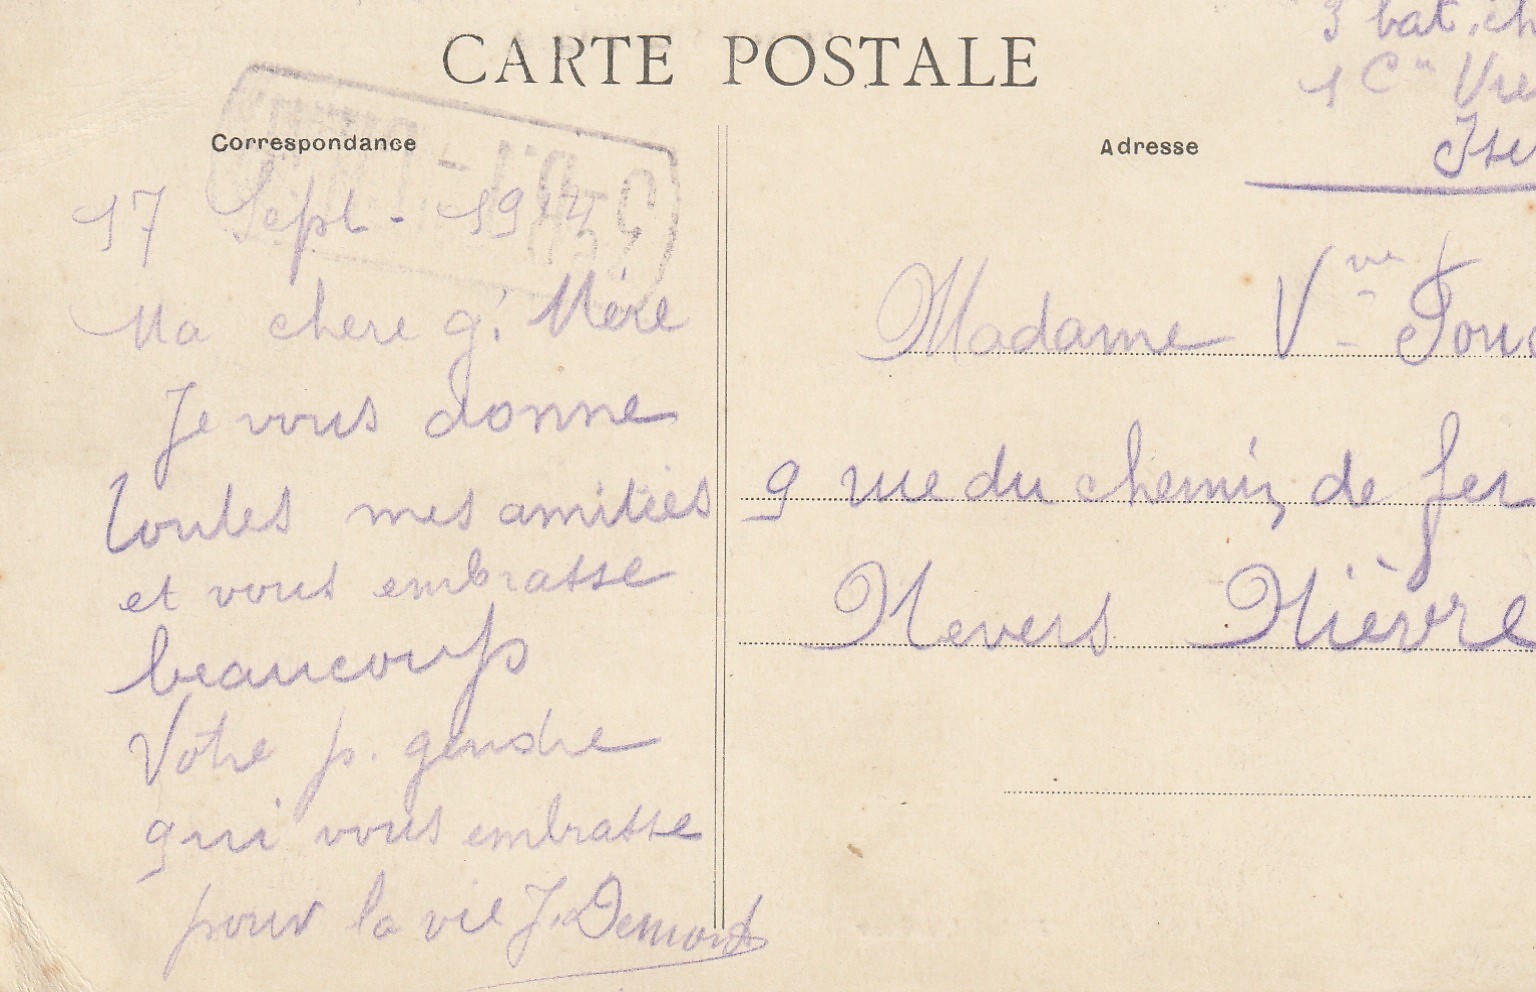 CARTE POSTALE
Correspondance
17 Sept - 1914
Ma chere g. Mère
Je vous donne
toutes mes amitiés
et vous embrasse
beaucoup
Votre p. gendre
qui vous embrasse
pour la vie J. Demont
3 bat. ch
1 Cie
Adresse
Madame Vve
9 rue du chemin de fer
Nevers Nièvre